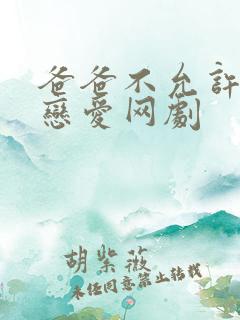 爸爸不允许
戀爱网劇
胡紫薇
未经同意禁止转载